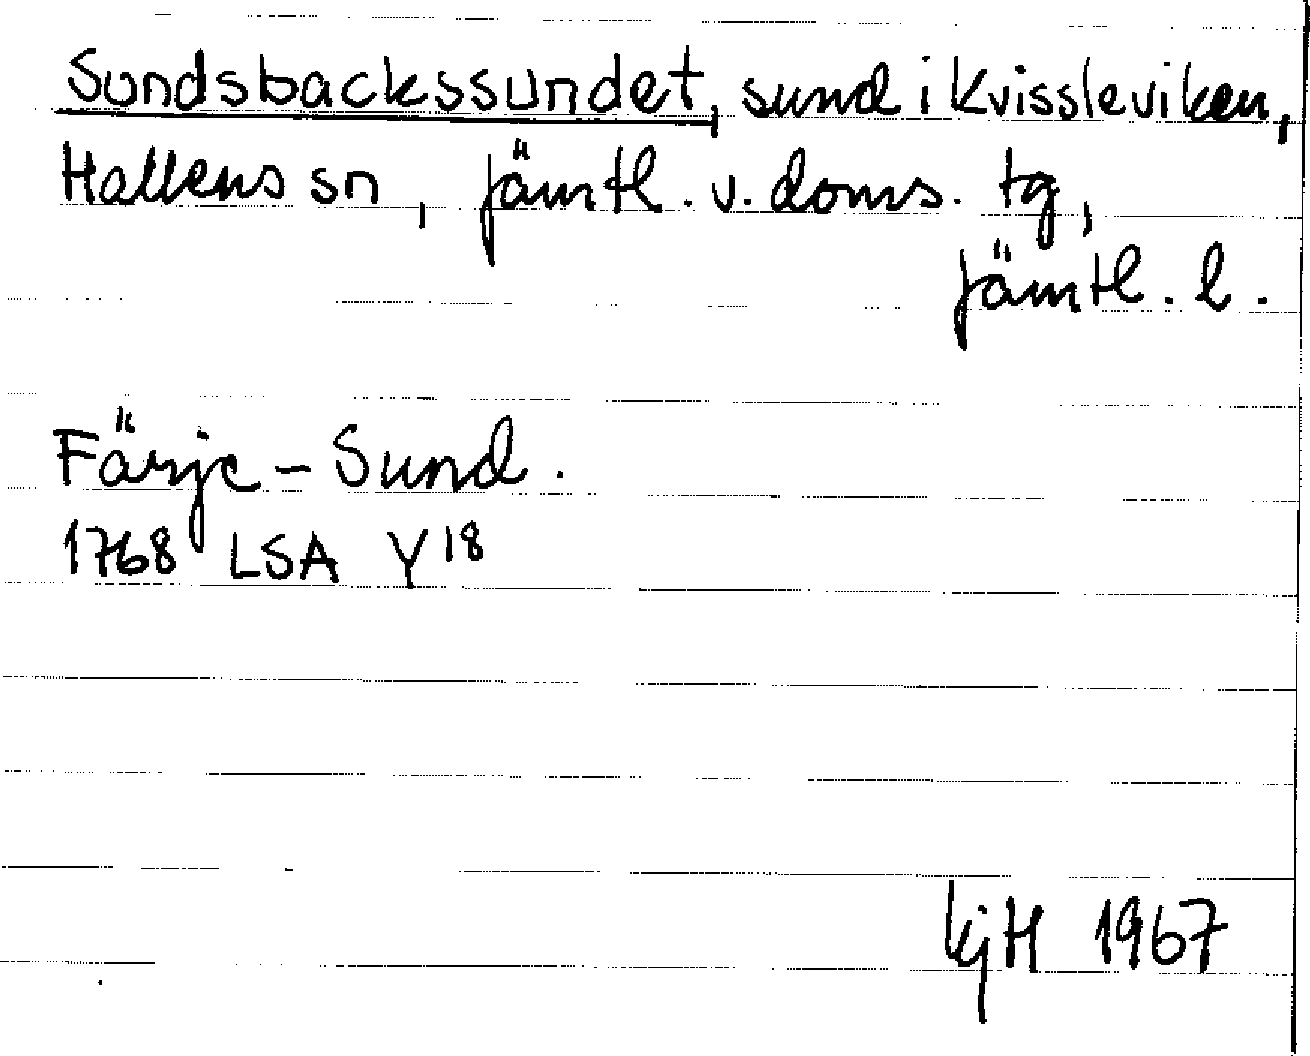 Sundsbackssundet, sund i Kvissleviken,
Hallens sn, Jämtl. v. doms. tg,
Jämtl. l.
Färje-Sund.
1768 LSA Y18
KjH 1967